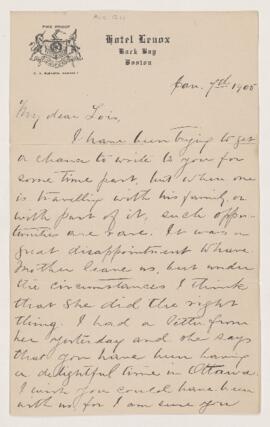 FIRE PROOF
Hotel Lenox
Back Bay
Boston
Jan. 7th 1905
My dear Lois,
I have been trying to get
a chance to write to you for
some time past, but when one
is travelling with his family, or
with part of it, such oppor-
tunities are rare. It was a
great disappointment to have
Mother leave us, but under
the circumstances I think
that she did the right
thing. I had a letter from
her yesterday and she says
that you have been having
a delightful time in Ottawa.
I wish you could have been
with us, for I am sure you